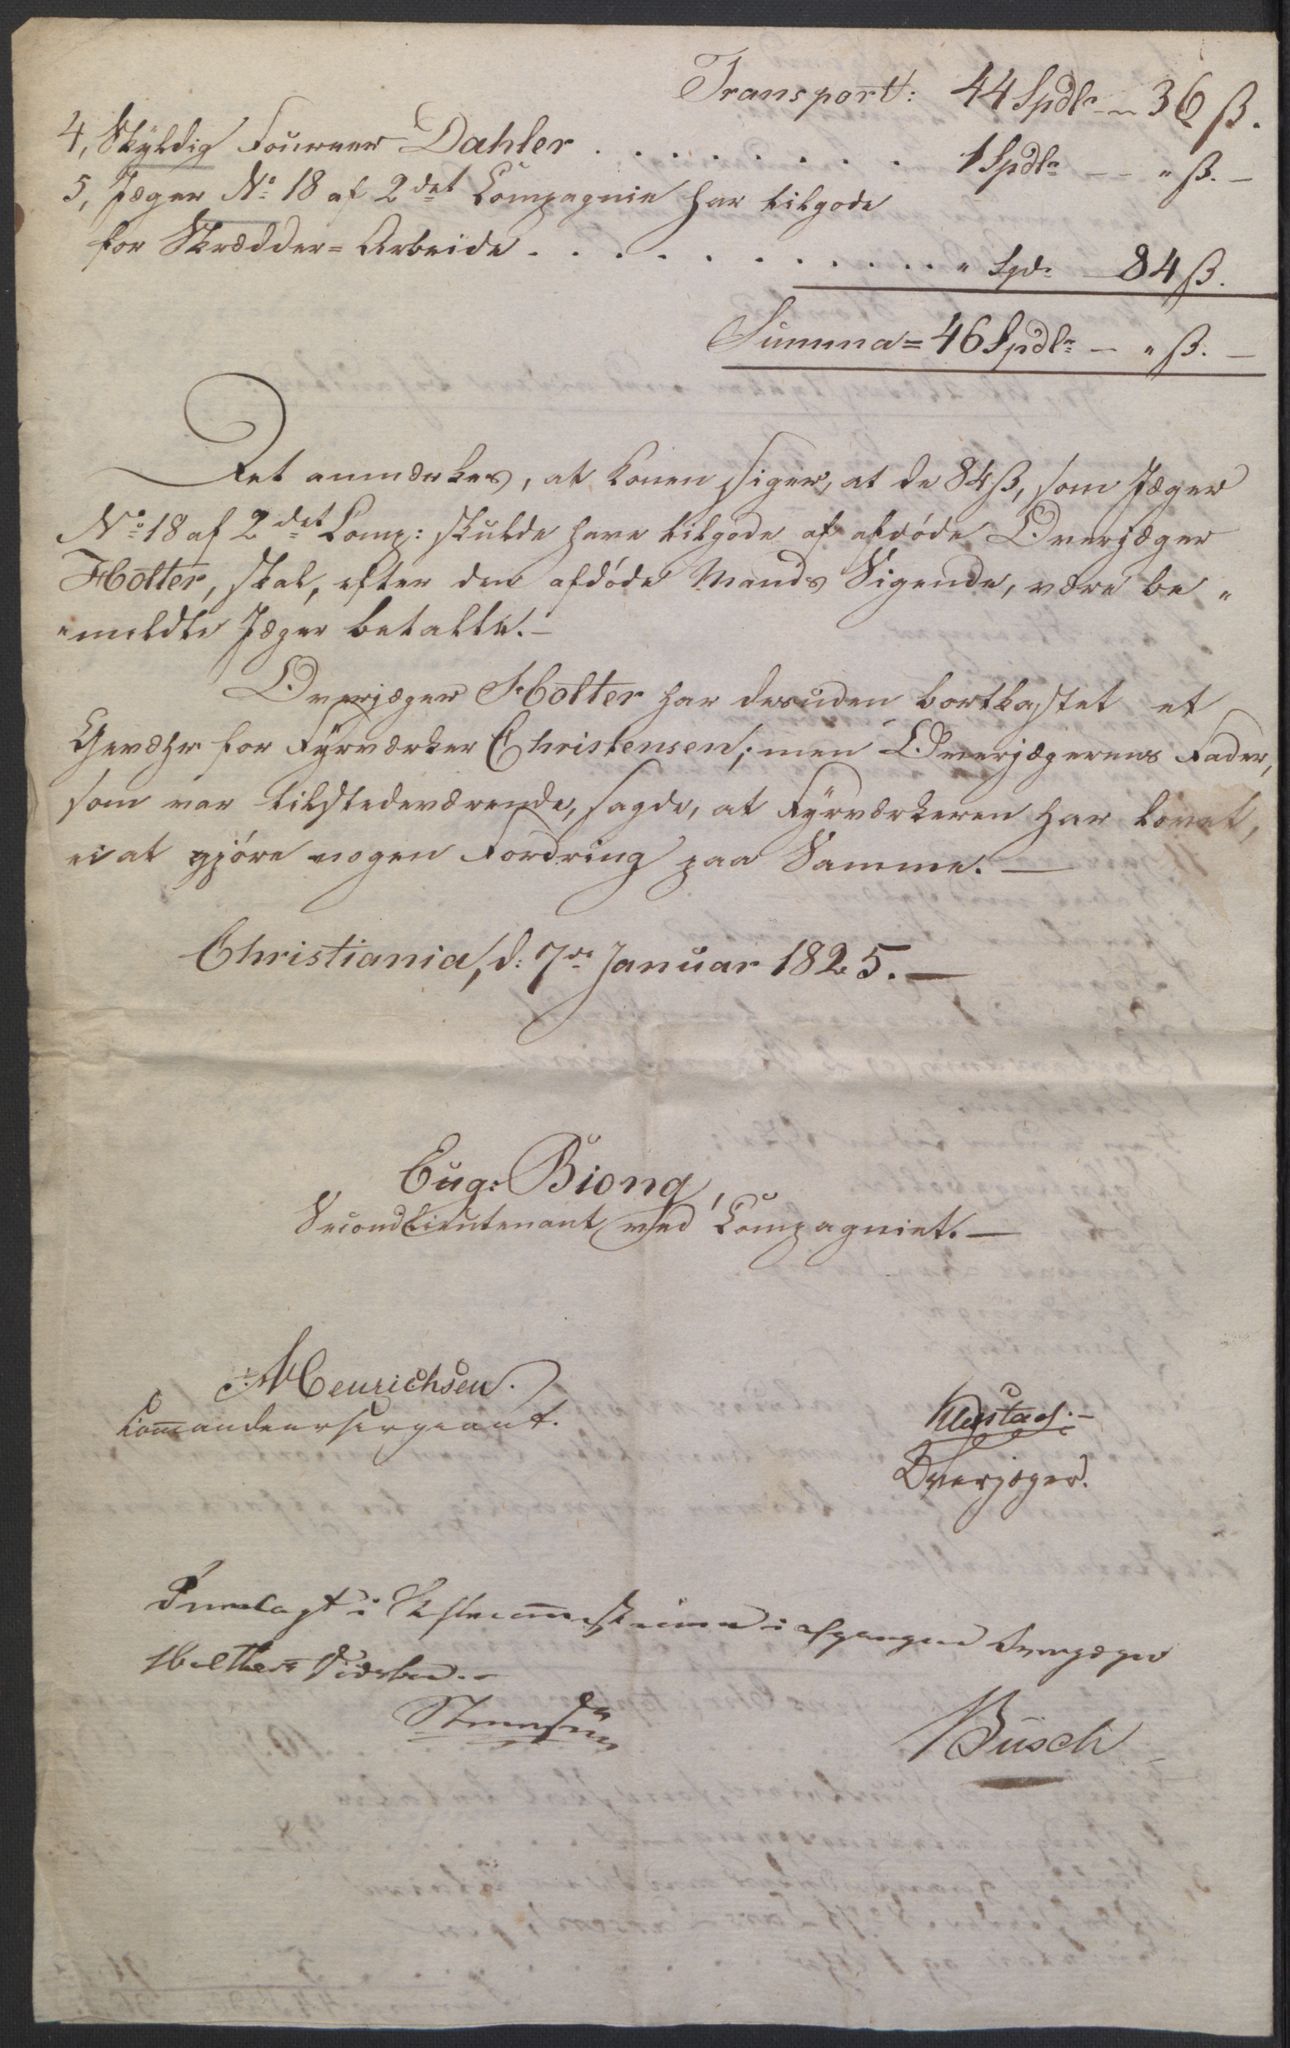 Transport: 44 Spdlr — 36 ß.
4, Skyldig Foureer Dahler . . . . . . . . 1 Spdlr — — " ß. —
5, Jæger No 18 af 2det Compagnie har tilgode
for Skrædder=Arbeide . . . . . . . . . . " Spd. 84 ß.
Summa = 46 Spdlr — " ß. —
Det anmærkes, at Konen siger, at de 84 ß, som Jæger
No 18 af 2det Comp: skulde have tilgode af afdøde Overjæger
Holter, skal, efter den afdøde Mands Sigende, være be "
"meldte Jæger betalte. —
Overjæger Holter har desuden bortkastet et
Gevæhr for Fÿrværker Christensen; men Overjægerens Fader,
som var tilstedeværende, sagde, at Fÿrværkeren har lovet,
ei at gjøre nogen Fordring paa Samme. —
Christiania, d: 7de Januar 1825. —
Eug: Biong,
Secondlieutenant ved Compagniet. —
Henrichsen.
Commandeersergeant.
Klestad. —
Overjæger.
Fremlagt i i afgangne Overjæger
Holters
Busch